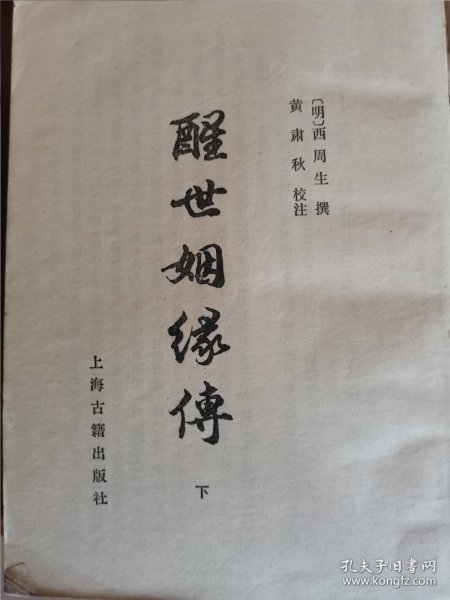 〔明〕西周生 撰
黄肃秋 校注
醒世姻缘傳
下
上海古籍出版社
孔夫子旧书网
www.kongfz.com